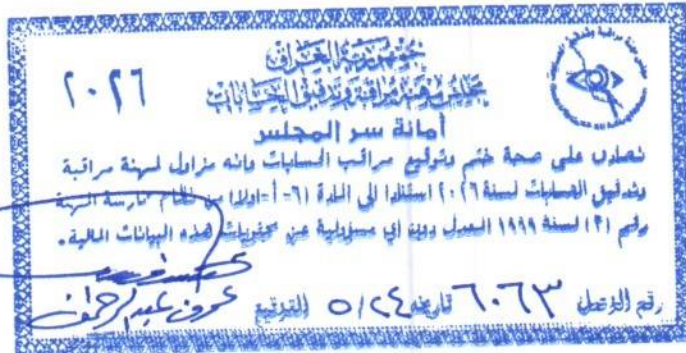 جمهورية العراق
٢٠٢٦
مجلس مهنة مراقبة وتدقيق الحسابات
أمانة سر المجلس
نصادق على صحة ختم وتوقيع مراقب الحسابات وانه مزاول لمهنة مراقبة
وتدقيق الحسابات لسنة ٢٠٢٦ استنادا الى المادة (٦-أ-اولا) من نظام ممارسة المهنة
رقم (٣) لسنة ١٩٩٩ المعدل دون اي مسؤولية عن محتويات هذه البيانات المالية.
رقم الوصل ٦٠٦٣ تاريخه ٥/٢٤ التوقيع